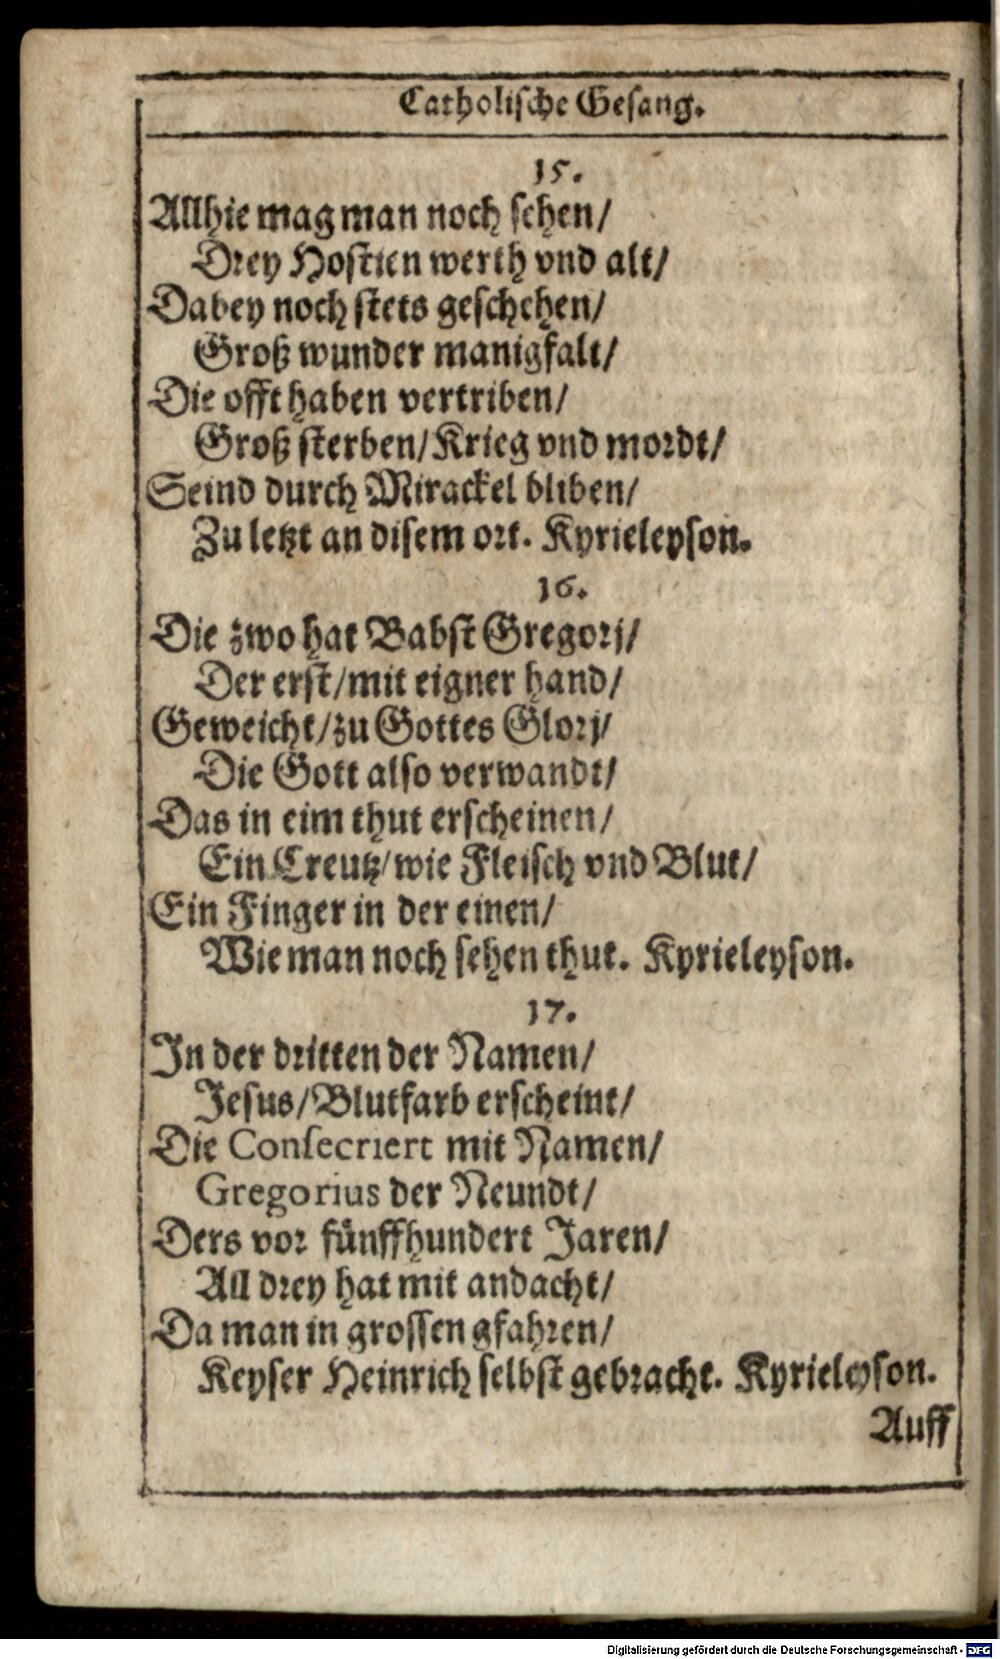 Catholische Gesang.
15.
Allhie mag man noch sehen/
Drey Hostien werth vnd alt/
Dabey noch stets geschehen/
Groß wunder manigfalt/
Die offt haben vertriben/
Groß sterben/Krieg vnd mordt/
Seind durch Mirackel bliben/
Zu letzt an disem ort. Kyrieleyson.
16.
Die zwo hat Babst Gregorj/
Der erst/mit eigner hand/
Geweicht/zu Gottes Glorj/
Die Gott also verwandt/
Das in eim thut erscheinen/
Ein Creutz/wie Fleisch vnd Blut/
Ein Finger in der einen/
Wie man noch sehen thut. Kyrieleyson.
17.
In der dritten der Namen/
Jesus/Blutfarb erscheint/
Die Consecriert mit Namen/
Gregorius der Neundt/
Ders vor fünffhundert Jaren/
All drey hat mit andacht/
Da man in grossen gfahren/
Keyser Heinrich selbst gebracht. Kyrieleyson.
Auff
Digitalisierung gefördert durch die Deutsche Forschungsgemeinschaft - DFG